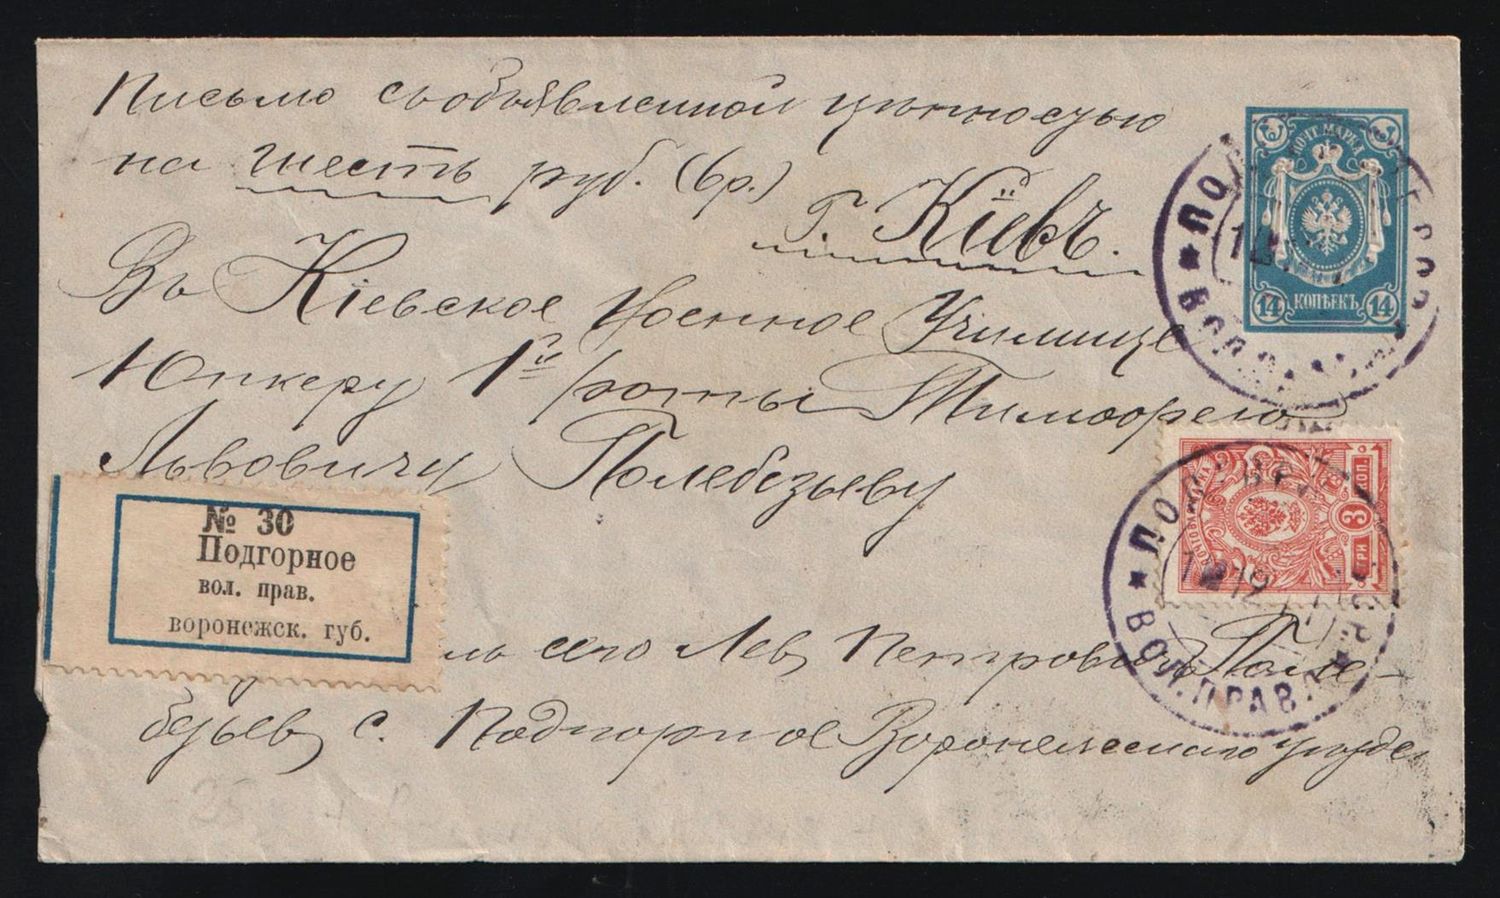 Письмо съ объявленной цѣнностью
на шесть руб. (6 р.)
г. Кіевъ.
Въ Кіевское Военное Училище
Юнкеру 1й роты Тимофею
Львовичу Полебезьеву
№ 30
Подгорное
вол. прав.
воронежск. губ.
ль сего Левъ Петровичъ Поле-
безьевъ с. Подгорное Воронежскаго уѣзда
ПОЧТ. МАРКА
14 КОПѢЕКЪ 14
3
ТРИ
КОП.
ВОЛ. ПРАВЛ